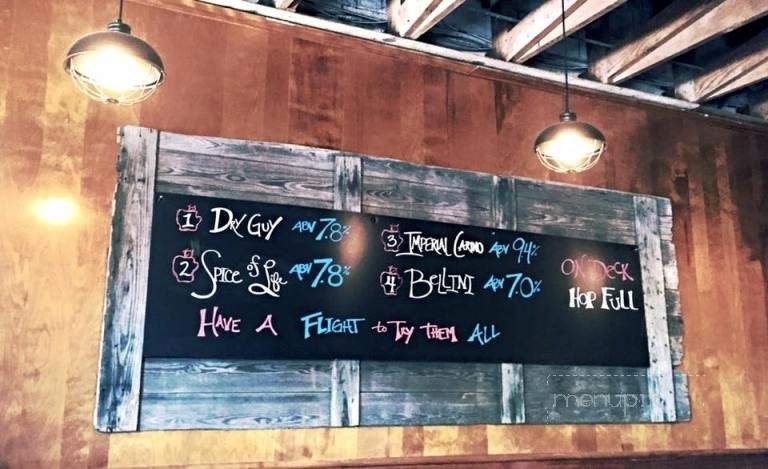 1 Dry Guy ABV 7.8%
2 Spice of Life ABV 7.8%
3 Imperial ABV 9.4%
4 Bellini ABV 7.0%
Have A Flight to Try them All
On Deck
Hop Full
menupix